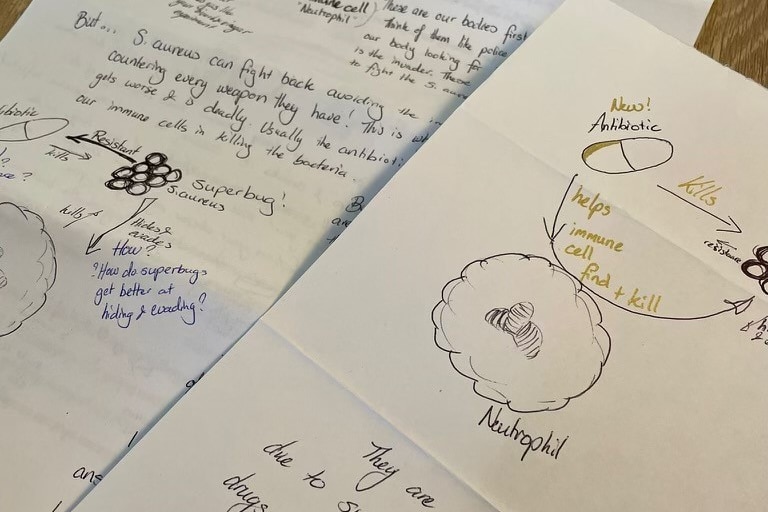 immune cell)
"Neutrophil"
These are our bodies first
Think of them like police
our body looking for
is the invader. These
to fight the S. aure
But... S. aureus can fight back avoiding the im
countering every weapon they have! This is wh
gets worse & is deadly. Usually the antibioti
our immune cells in killing the bacteria.
ibiotic
Resistant
kills
S. aureus
Superbug!
kills
Hides &
evades
How?
? How do superbugs
get better at
hiding & evading?
ans
New!
Antibiotic
kills
resistance
helps
immune
cell
find + kill
Neutrophil
They are
due to su
drugs